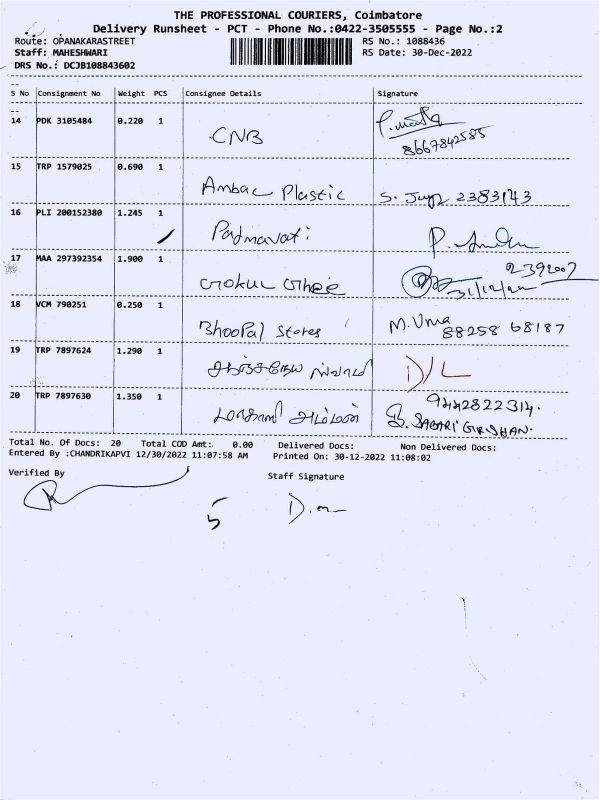 THE PROFESSIONAL COURIERS, Coimbatore
Delivery Runsheet - PCT - Phone No.:0422-3505555 - Page No.:2
Route: OPANAKARASTREET RS No.: 1088436
Staff: MAHESHWARI RS Date: 30-Dec-2022
DRS No.: DCJB108843602
S No Consignment No Weight PCS Consignee Details Signature
14 PDK 3105484 0.220 1 CNB
8667842585
15 TRP 1579025 0.690 1 Ambac Plastic S. 2383143
16 PLI 200152380 1.245 1 Padmavati P.
17 MAA 297392354 1.900 1 Gokul Ghee 2392007
31/12/22
18 VCM 790251 0.250 1 Bhoopal Stores M. Uma
88258 68187
19 TRP 7897624 1.290 1 D/L
20 TRP 7897630 1.350 1 அம்மன் 9442822314.
B. SABARI GIRISHAN.
Total No. Of Docs: 20 Total COD Amt: 0.00 Delivered Docs: Non Delivered Docs:
Entered By :CHANDRIKAPVI 12/30/2022 11:07:58 AM Printed On: 30-12-2022 11:08:02
Verified By Staff Signature
5